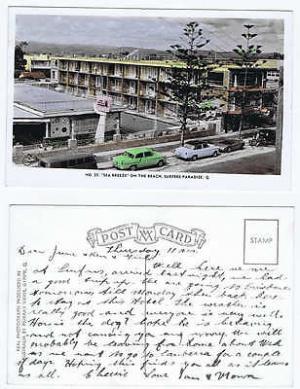 NO. 25. "SEA BREEZE" ON THE BEACH, SURFERS PARADISE. Q.
POST CARD
STAMP
REAL PHOTOGRAPH PRODUCED IN
AUSTRALIA BY MURRAY VIEWS, GYMPIE, Q.
Thursday 11 a.m.
Dear June
Well here we are
at Surfers, arrived last night
a good trip. We are going to Brisbane
tomorrow until Monday then back here.
to stay at this Hotel the weather is
really good and everyone is very well
How is the dog? hope he is behaving
and not causing you any worry. We will
probably be leaving for home about Wed
as we want to go to Canberra for a couple
of days. Hoping this finds you all as it leaves
us all. Cheerio Love Jean &